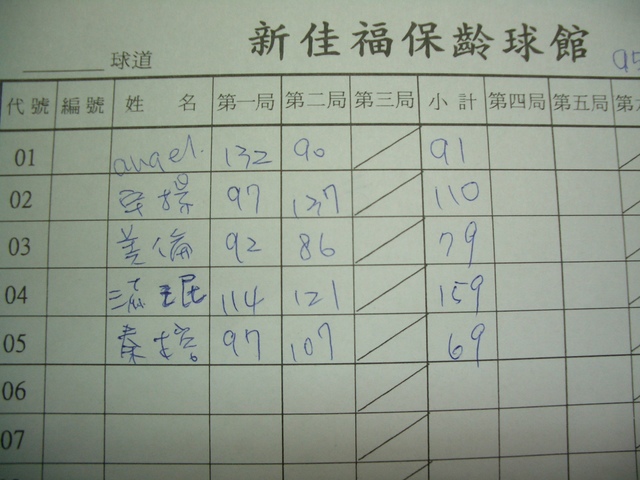 新佳福保齡球館
球道 95
代號 編號 姓名 第一局 第二局 第三局 小計 第四局 第五局 第
01 angel. 132 90 91
02 97 137 110
03 美倫 92 86 79
04 流珉 114 121 159
05 秦培 97 107 69
06
07